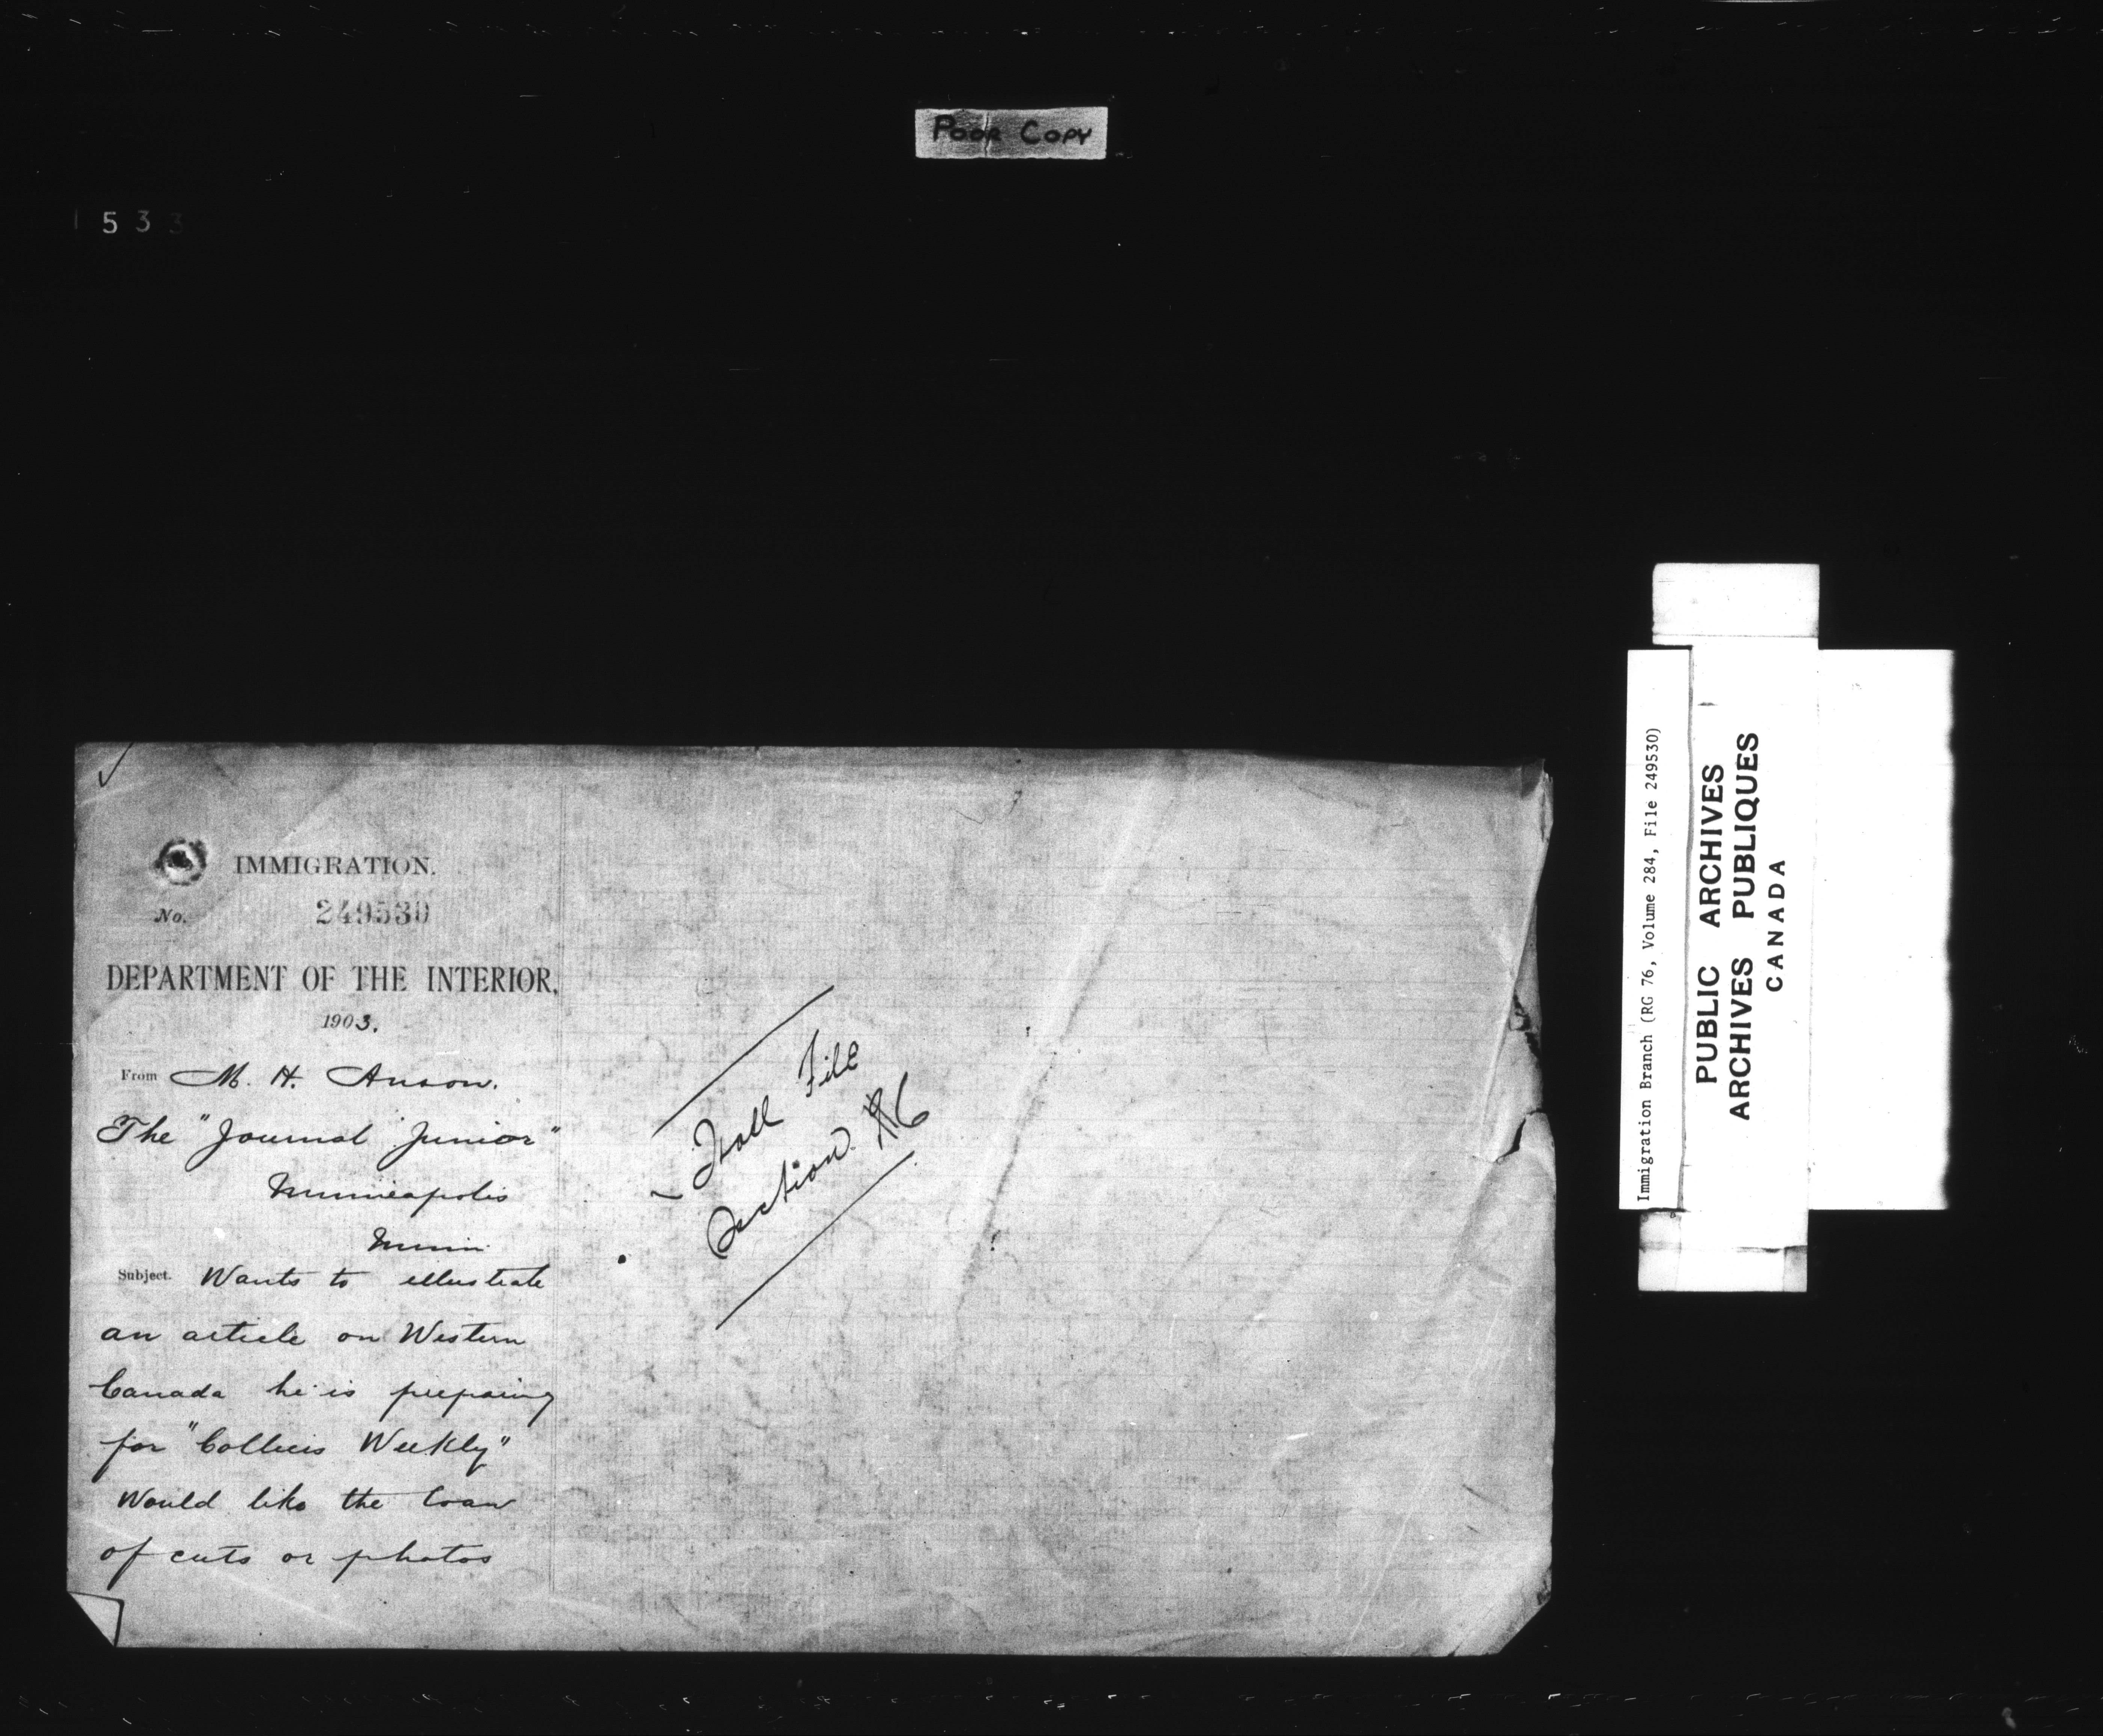 POOR COPY
1533
IMMIGRATION.
No. 249530
DEPARTMENT OF THE INTERIOR,
1903.
From M. H. Anson.
The "Journal Junior"
Minneapolis
Minn.
Subject. Wants to illustrate
an article on Western
Canada he is preparing
for "Colliers Weekly"
Would like the loan
of cuts or photos
File
Section
Immigration Branch (RG 76, Volume 284, File 249530)
PUBLIC ARCHIVES
ARCHIVES PUBLIQUES
CANADA